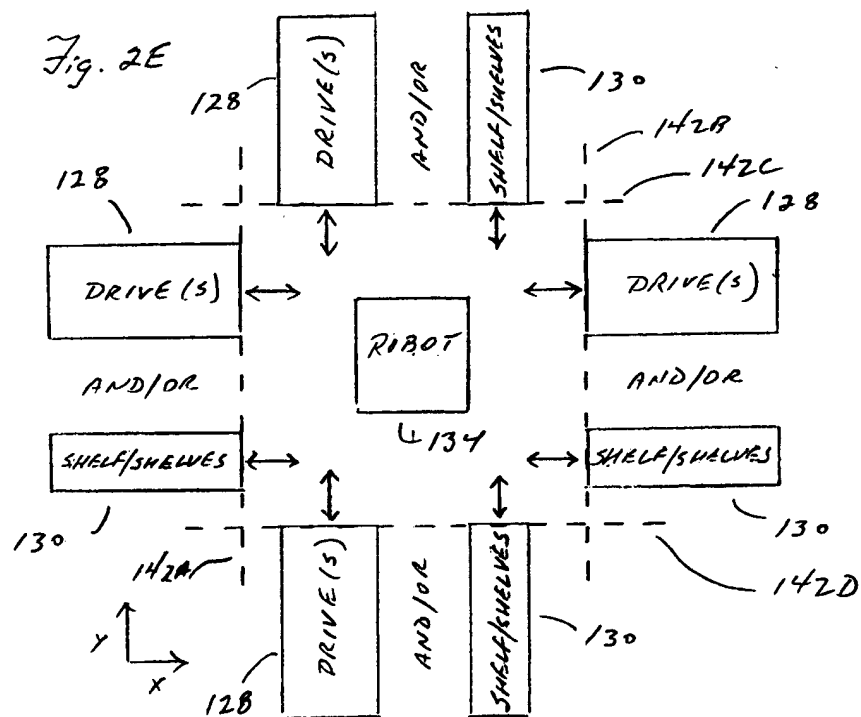 Fig. 2E
128
DRIVE(S)
AND/OR
SHELF/SHELVES
130
142B
142C
128
DRIVE(S)
128
DRIVE(S)
ROBOT
134
AND/OR
AND/OR
SHELF/SHELVES
SHELF/SHELVES
130
130
142A
142D
DRIVE(S)
AND/OR
SHELF/SHELVES
130
128
Y
X